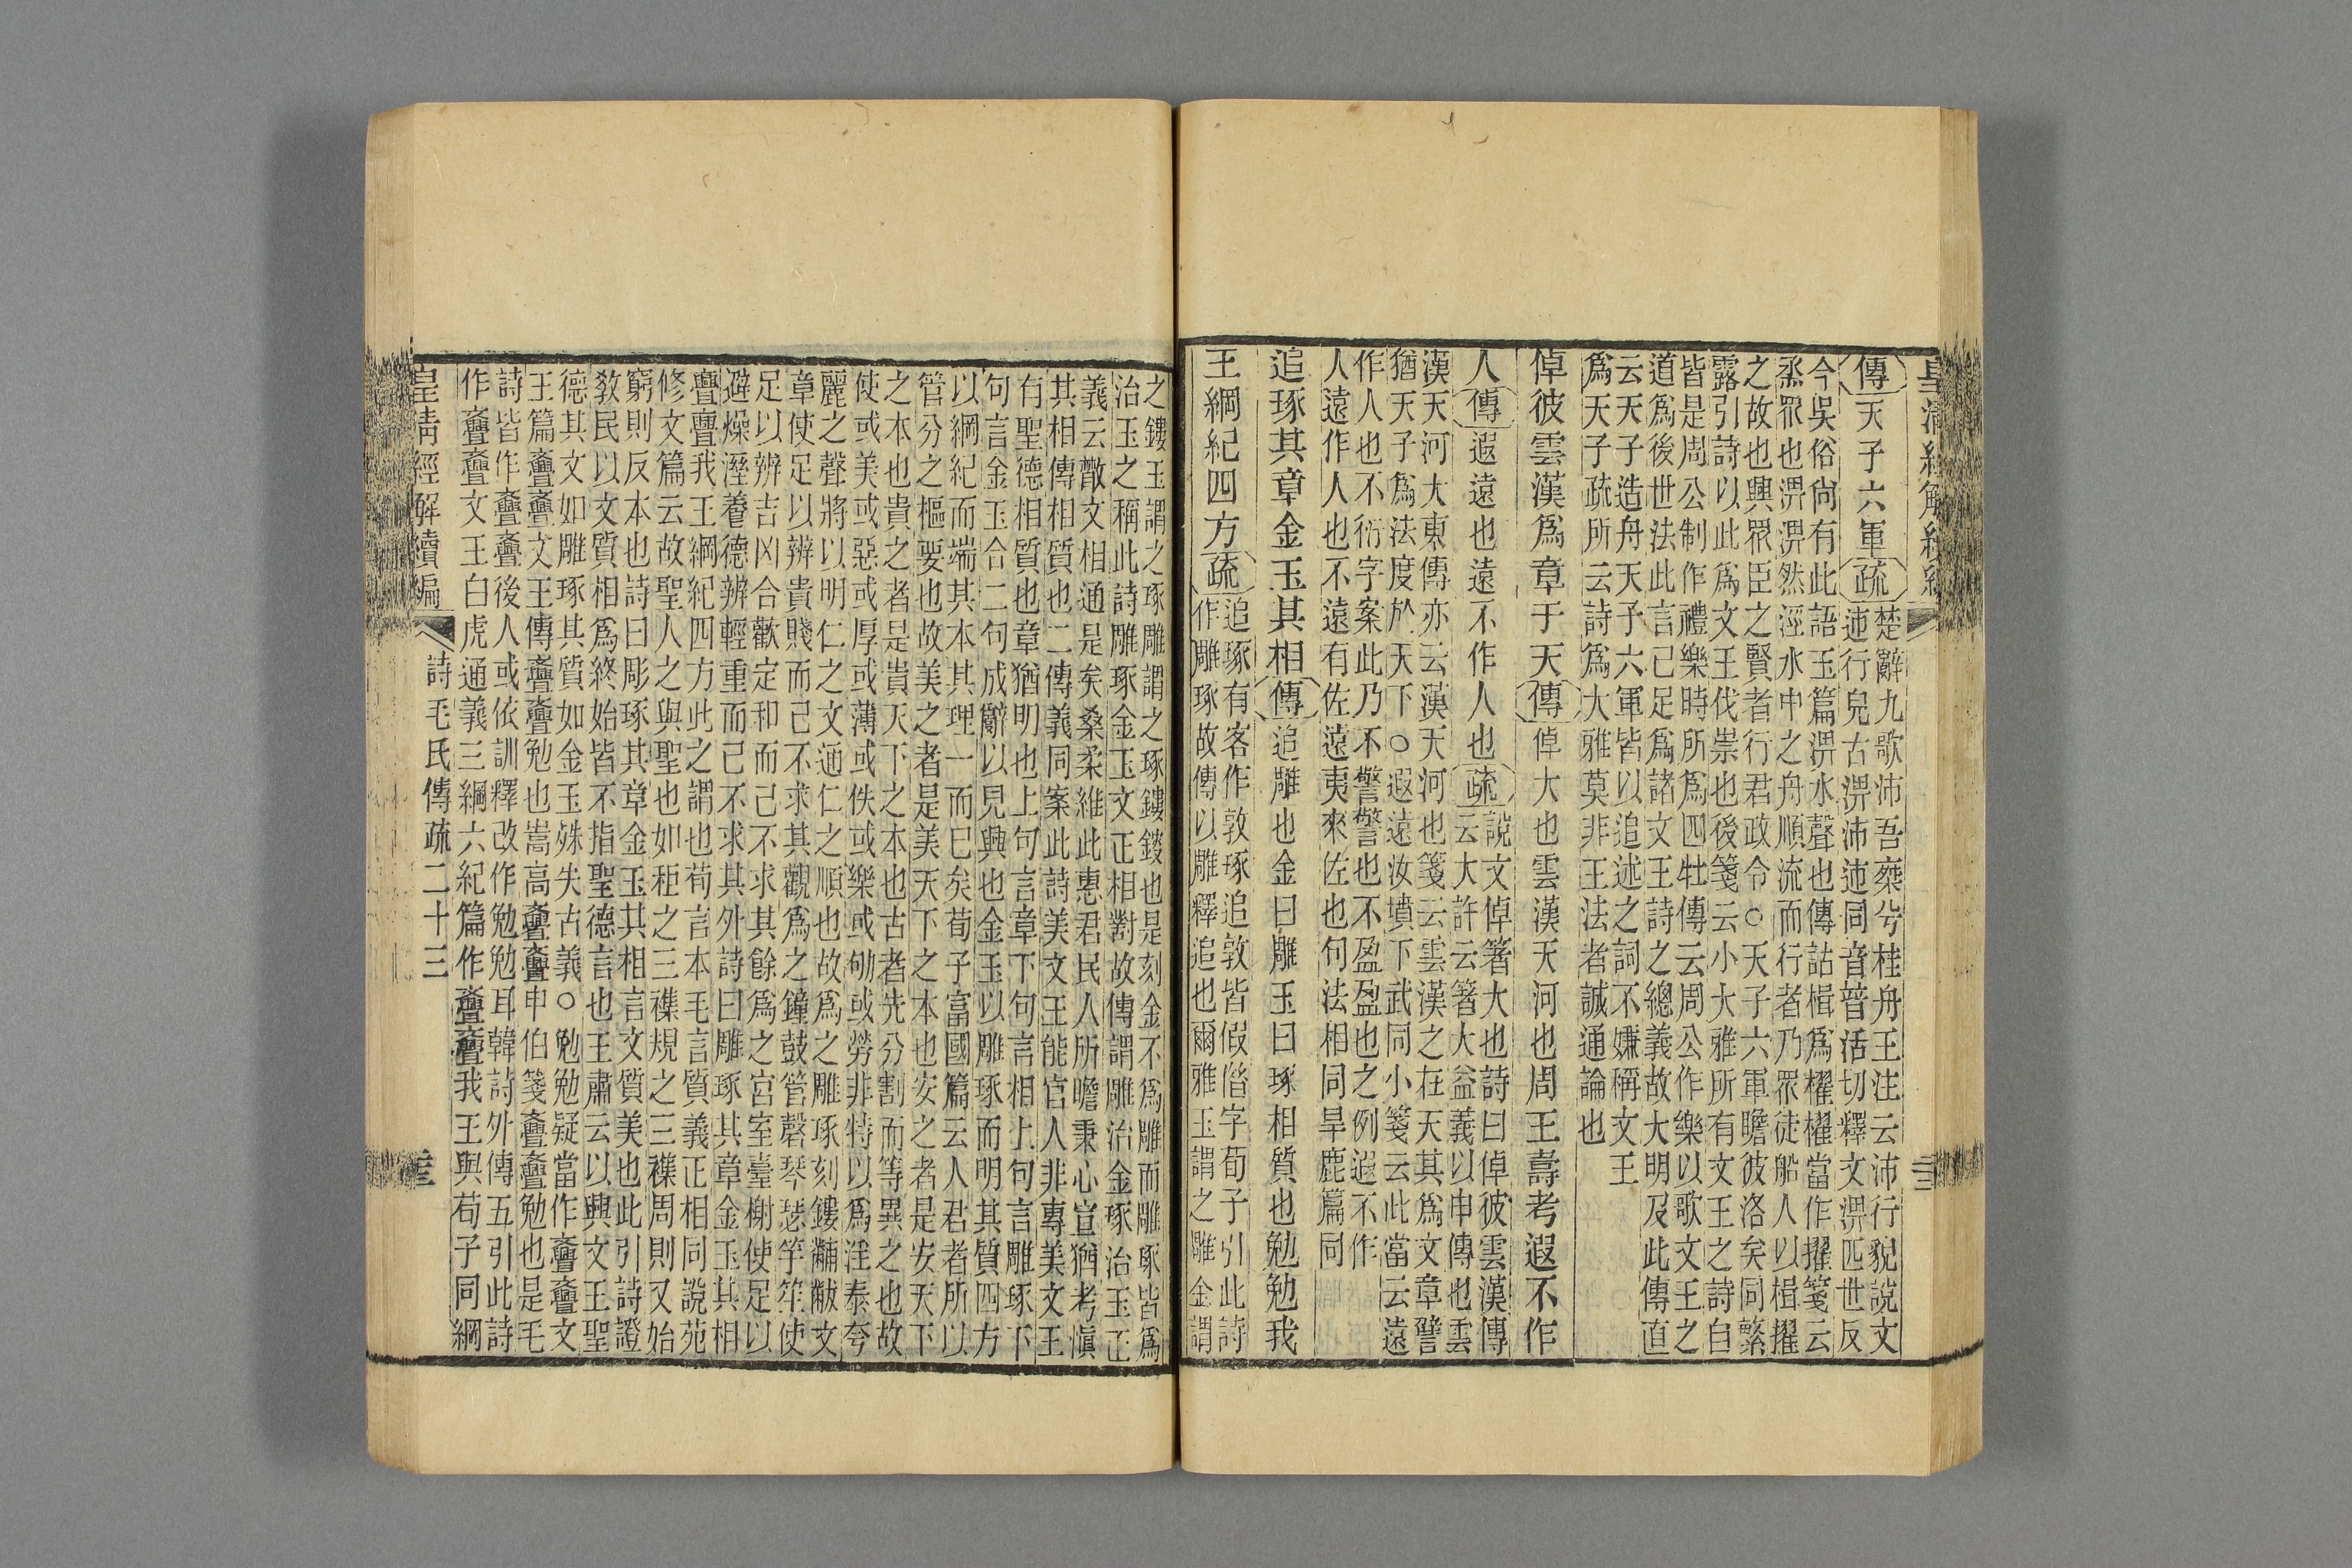 皇清經解續編
傳天子六軍疏楚辭九歌沛吾椉兮桂舟王注云沛行貌說文
迣行皃古淠沛迣同音普活切釋文淠匹世反
今吳俗尚有此語玉篇淠水聲也傳詁楫爲櫂櫂當作擢箋云
烝眾也淠淠然涇水中之舟順流而行者乃眾徒船人以楫擢
之故也興眾臣之賢者行君政令○天子六軍瞻彼洛矣同繁
露引詩以此爲文王伐崇也後箋云小大雅所有文王之詩白
皆是周公制作禮樂時所爲四牡傳云周公作樂以歌文王之
道爲後世法此言已足爲諸文王詩之總義故大明及此傳直
云天子造舟天子六軍皆以追述之詞不嫌稱文王
爲天子疏所云詩爲大雅莫非王法者誠通論也
倬彼雲漢爲章于天傳倬大也雲漢天河也周王壽考遐不作
人傳遐遠也遠不作人也疏說文倬箸大也詩曰倬彼雲漢傳
云大許云箸大益義以申傳也雲
漢天河大東傳亦云漢天河也箋云雲漢之在天其爲文章譬
猶天子爲法度於天下○遐遠汝墳下武同小箋云此當云遠
作人也不衍字案此乃不警警也不盈盈也之例遐不作
人遠作人也不遠有佐遠夷來佐也句法相同旱鹿篇同
追琢其章金玉其相傳追雕也金曰雕玉曰琢相質也勉勉我
王綱紀四方疏追琢有客作敦琢追敦皆假偕字荀子引此詩
作雕琢故傳以雕釋追也爾雅玉謂之雕金謂
之鏤玉謂之琢雕謂之琢鏤鎪也是刻金不爲雕而雕琢皆爲
治玉之稱此詩雕琢金玉文正相對故傳謂雕治金琢治玉正
義云散文相通是矣桑柔維此惠君民人所瞻秉心宣猶考慎
其相傳相質也二傳義同案此詩美文王能官人非專美文王
有聖德相質也章猶明也上句言章下句言相上句言雕琢下
句言金玉合二句成辭以見興也金玉以雕琢而明其質四方
以綱紀而端其本其理一而已矣荀子富國篇云人君者所以
管分之樞要也故美之者是美天下之本也安之者是安天下
之本也貴之者是貴天下之本也古者先分割而等異之也故
使或美或惡或厚或薄或佚或樂或劬或勞非特以爲淫泰夸
麗之聲將以明仁之文通仁之順也故爲之雕琢刻鏤黼黻文
章使足以辨貴賤而已不求其觀爲之鐘鼓管磬琴瑟竽笙使
足以辨吉凶合歡定和而已不求其餘爲之宮室臺榭使足以
避燥溼養德辨輕重而已不求其外詩曰雕琢其章金玉其相
亹亹我王綱紀四方此之謂也荀言本毛言質義正相同說苑
修文篇云故聖人之與聖也如矩之三襍規之三襍周則又始
窮則反本也詩曰彫琢其章金玉其相言文質美也此引詩證
敎民以文質相爲終始皆不指聖德言也王肅云以興文王聖
德其文如雕琢其質如金玉殊失古義○勉勉疑當作亹亹文
王篇亹亹文王傳亹亹勉也嵩高亹亹申伯箋亹亹勉也是毛
詩皆作亹亹後人或依訓釋改作勉勉耳韓詩外傳五引此詩
作亹亹文王白虎通義三綱六紀篇作亹亹我王與荀子同綱
皇清經解續編 詩毛氏傳疏二十三